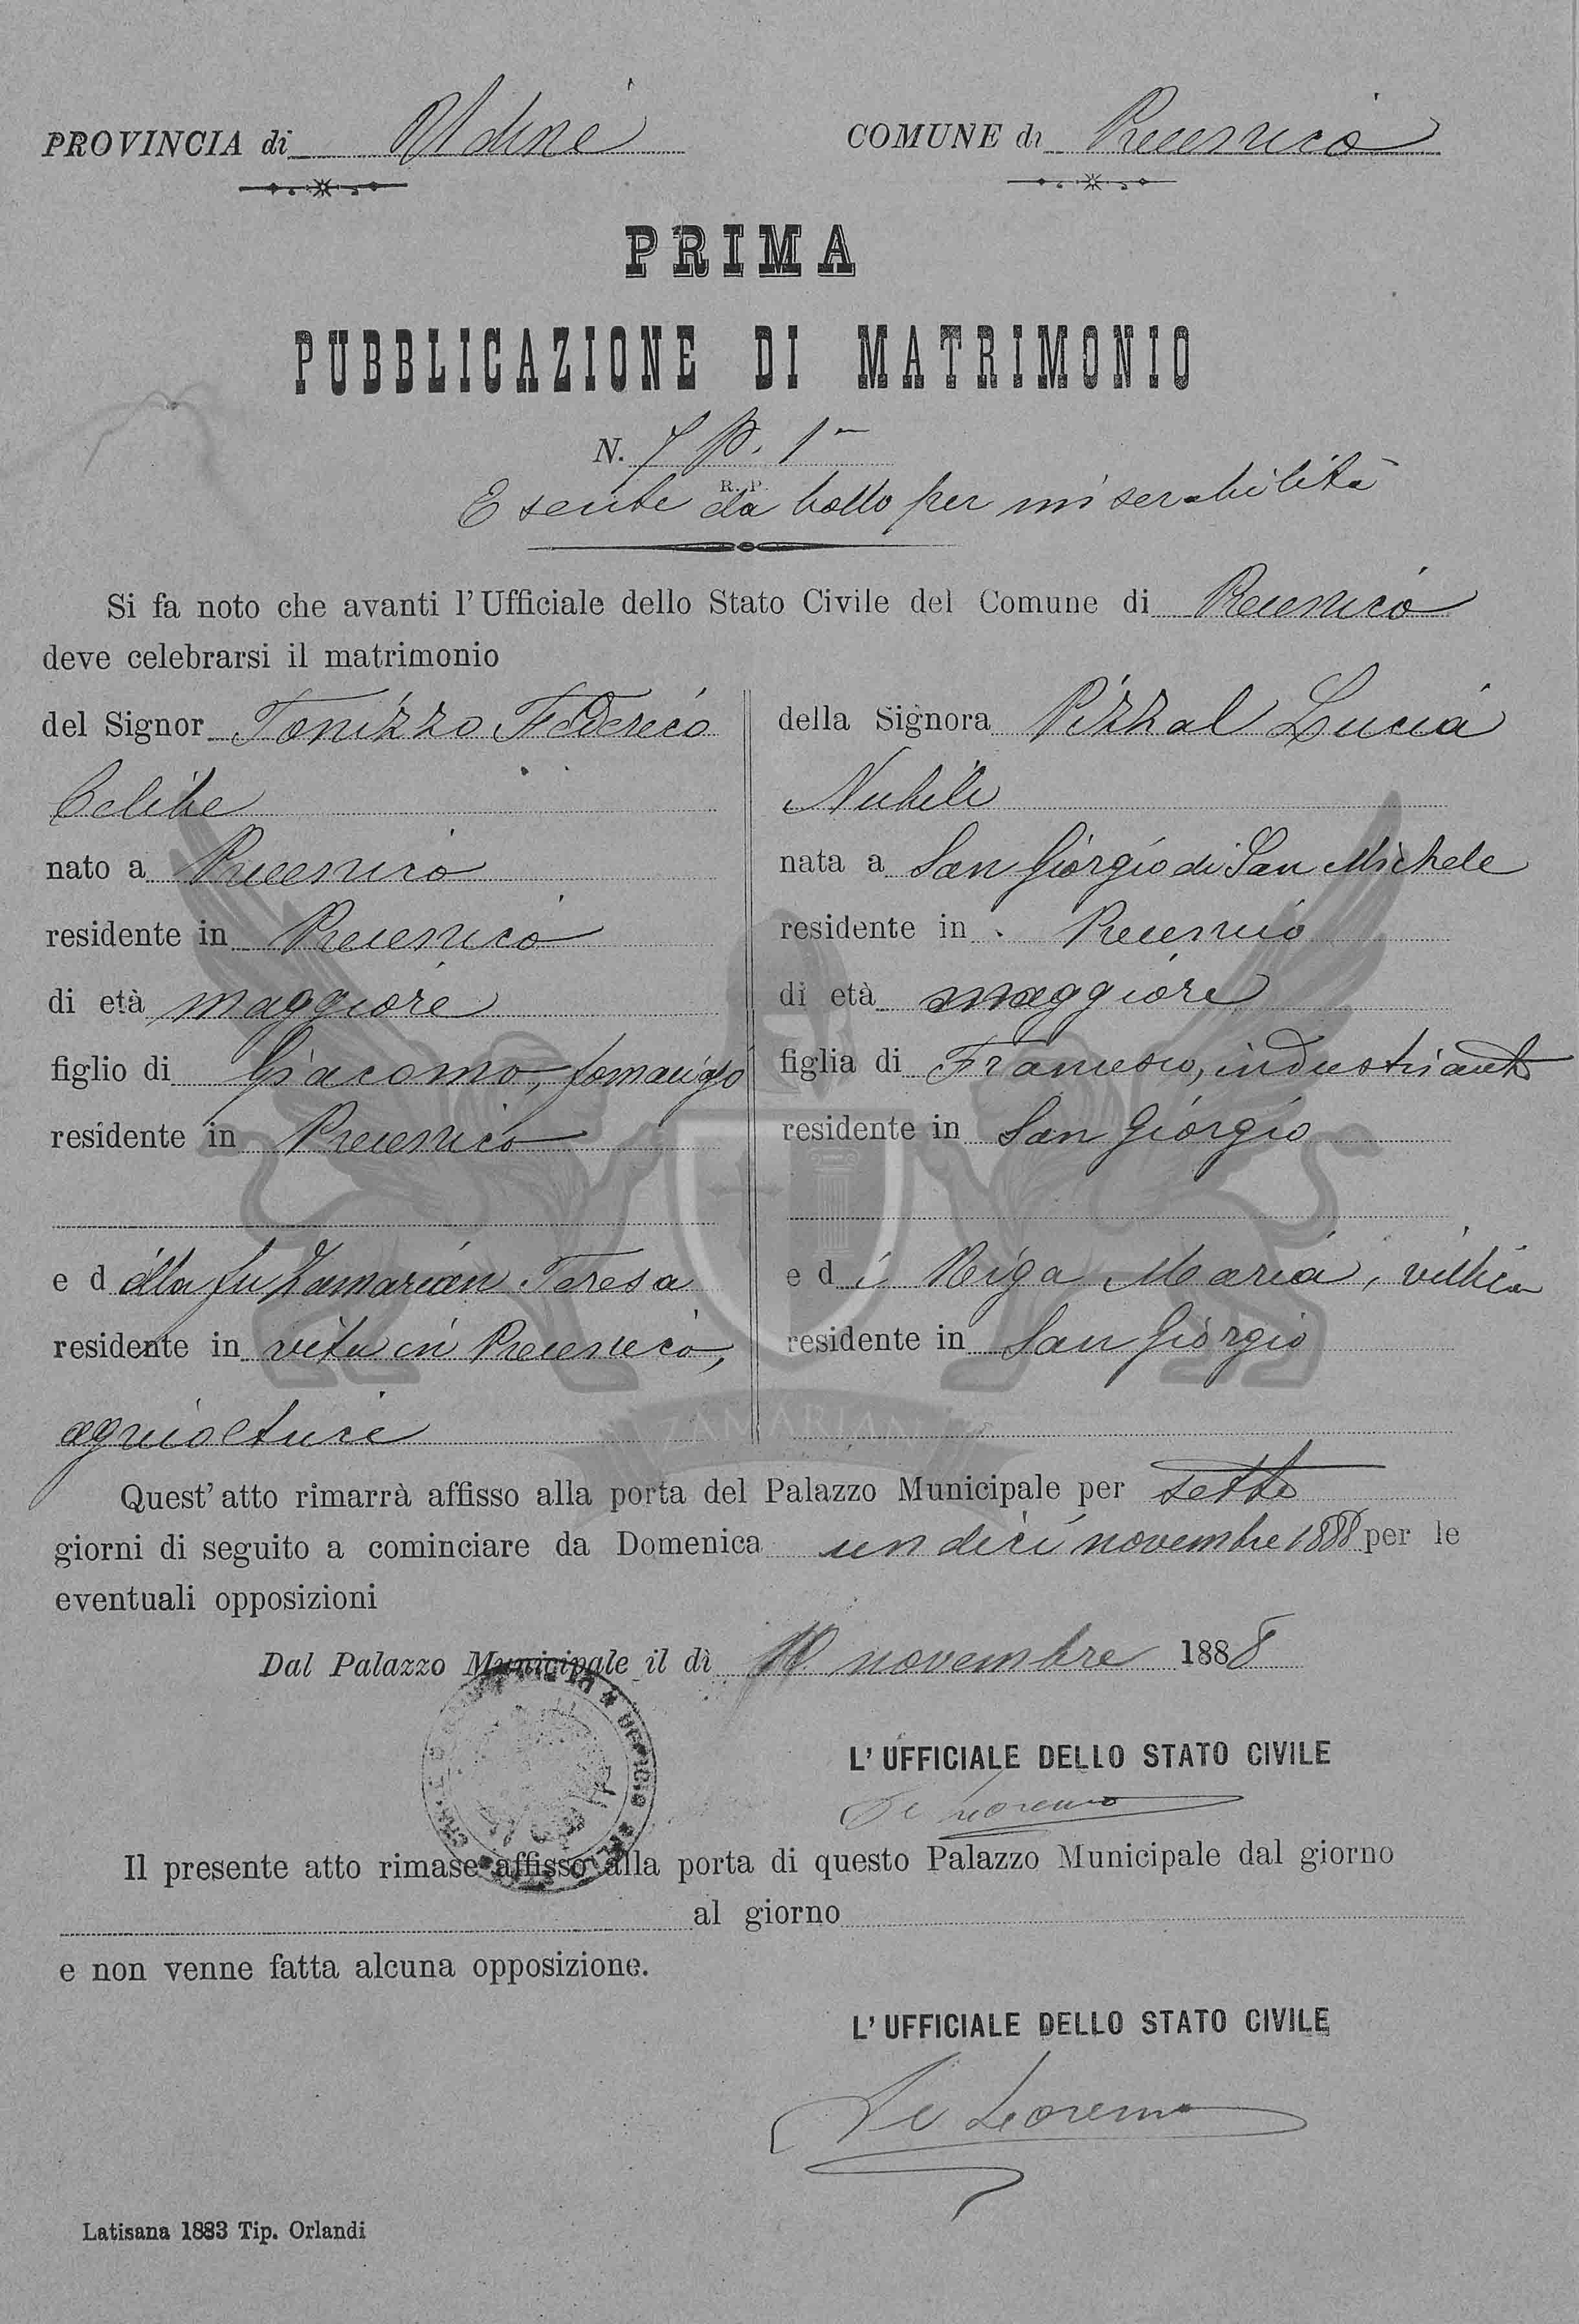 PROVINCIA di Udine COMUNE di Precenico
PRIMA
PUBBLICAZIONE DI MATRIMONIO
N. 7 P. 1ª
R. P.
Esente da bollo per miserabilità
Si fa noto che avanti l'Ufficiale dello Stato Civile del Comune di Precenico
deve celebrarsi il matrimonio
del Signor Tonizzo Federico
Celibe
nato a Precenico
residente in Precenico
di età maggiore
figlio di Giacomo,
residente in Precenico
e d ella fu Zamarian Teresa
residente in vita in Precenico,
agricoltori
della Signora Pizzal Lucia
Nubile
nata a San Giorgio di San Michele
residente in Precenico
di età maggiore
figlia di Francesco, industriante
residente in San Giorgio
e d i Biga Maria, villica
residente in San Giorgio
ZAMARIAN
Quest'atto rimarrà affisso alla porta del Palazzo Municipale per sette
giorni di seguito a cominciare da Domenica undici novembre 1888 per le
eventuali opposizioni
Dal Palazzo Municipale il dì 10 novembre 1888
L'UFFICIALE DELLO STATO CIVILE
De Lorenzo
Il presente atto rimase affisso alla porta di questo Palazzo Municipale dal giorno
al giorno
e non venne fatta alcuna opposizione.
L'UFFICIALE DELLO STATO CIVILE
De Lorenzo
Latisana 1883 Tip. Orlandi